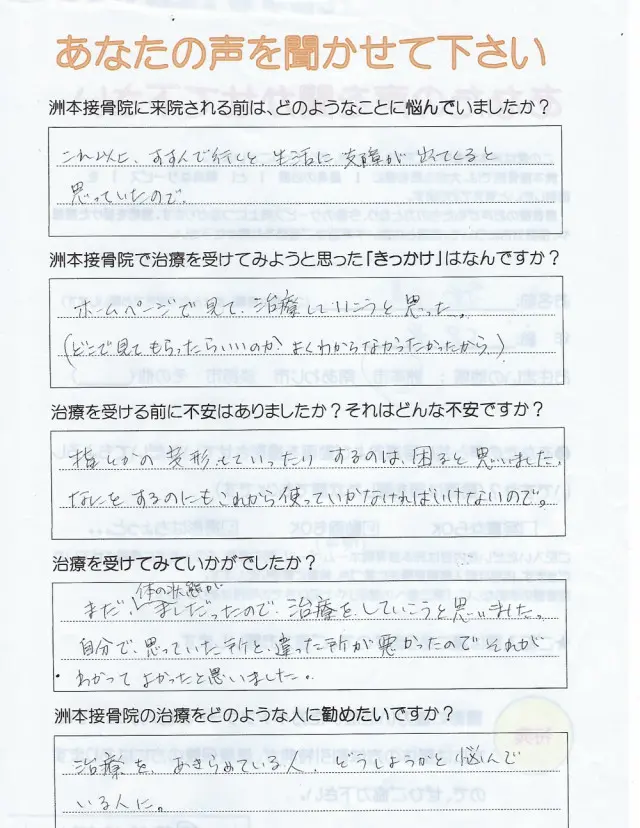 あなたの声を聞かせて下さい
洲本接骨院に来院される前は、どのようなことに悩んでいましたか?
これ以上、すすんで行くと、生活に支障が出てくると
思っていたので、
洲本接骨院で治療を受けてみようと思った「きっかけ」はなんですか?
ホームページで見て、治療していこうと思った。
(どこで見てもらったらいいのか よくわからなかったから)
治療を受ける前に不安はありましたか?それはどんな不安ですか?
指とかの変形していったりするのは、困ると思いました。
なにをするのにもこれから使っていかなければいけないので。
治療を受けてみていかがでしたか?
体の状態が
まだ、ましだったので、治療を、していこうと思いました。
自分で、思っていた所と、違った所が悪かったのでそれが
わかってよかったと思いました。
洲本接骨院の治療をどのような人に勧めたいですか?
治療を、あきらめている人、どうしようかと悩んで
いる人に。